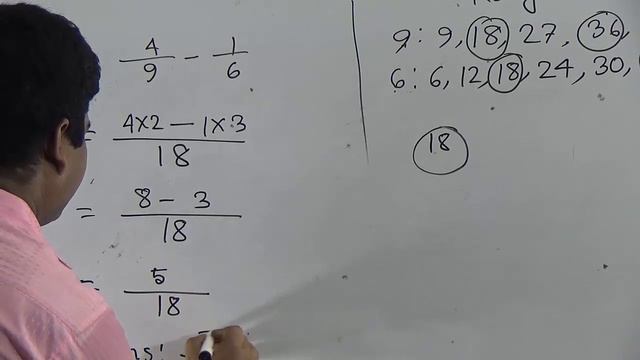 4/9 - 1/6
= 4x2 - 1x3 / 18
= 8 - 3 / 18
= 5 / 18
9: 9, 18, 27, 36,
6: 6, 12, 18, 24, 30,
18